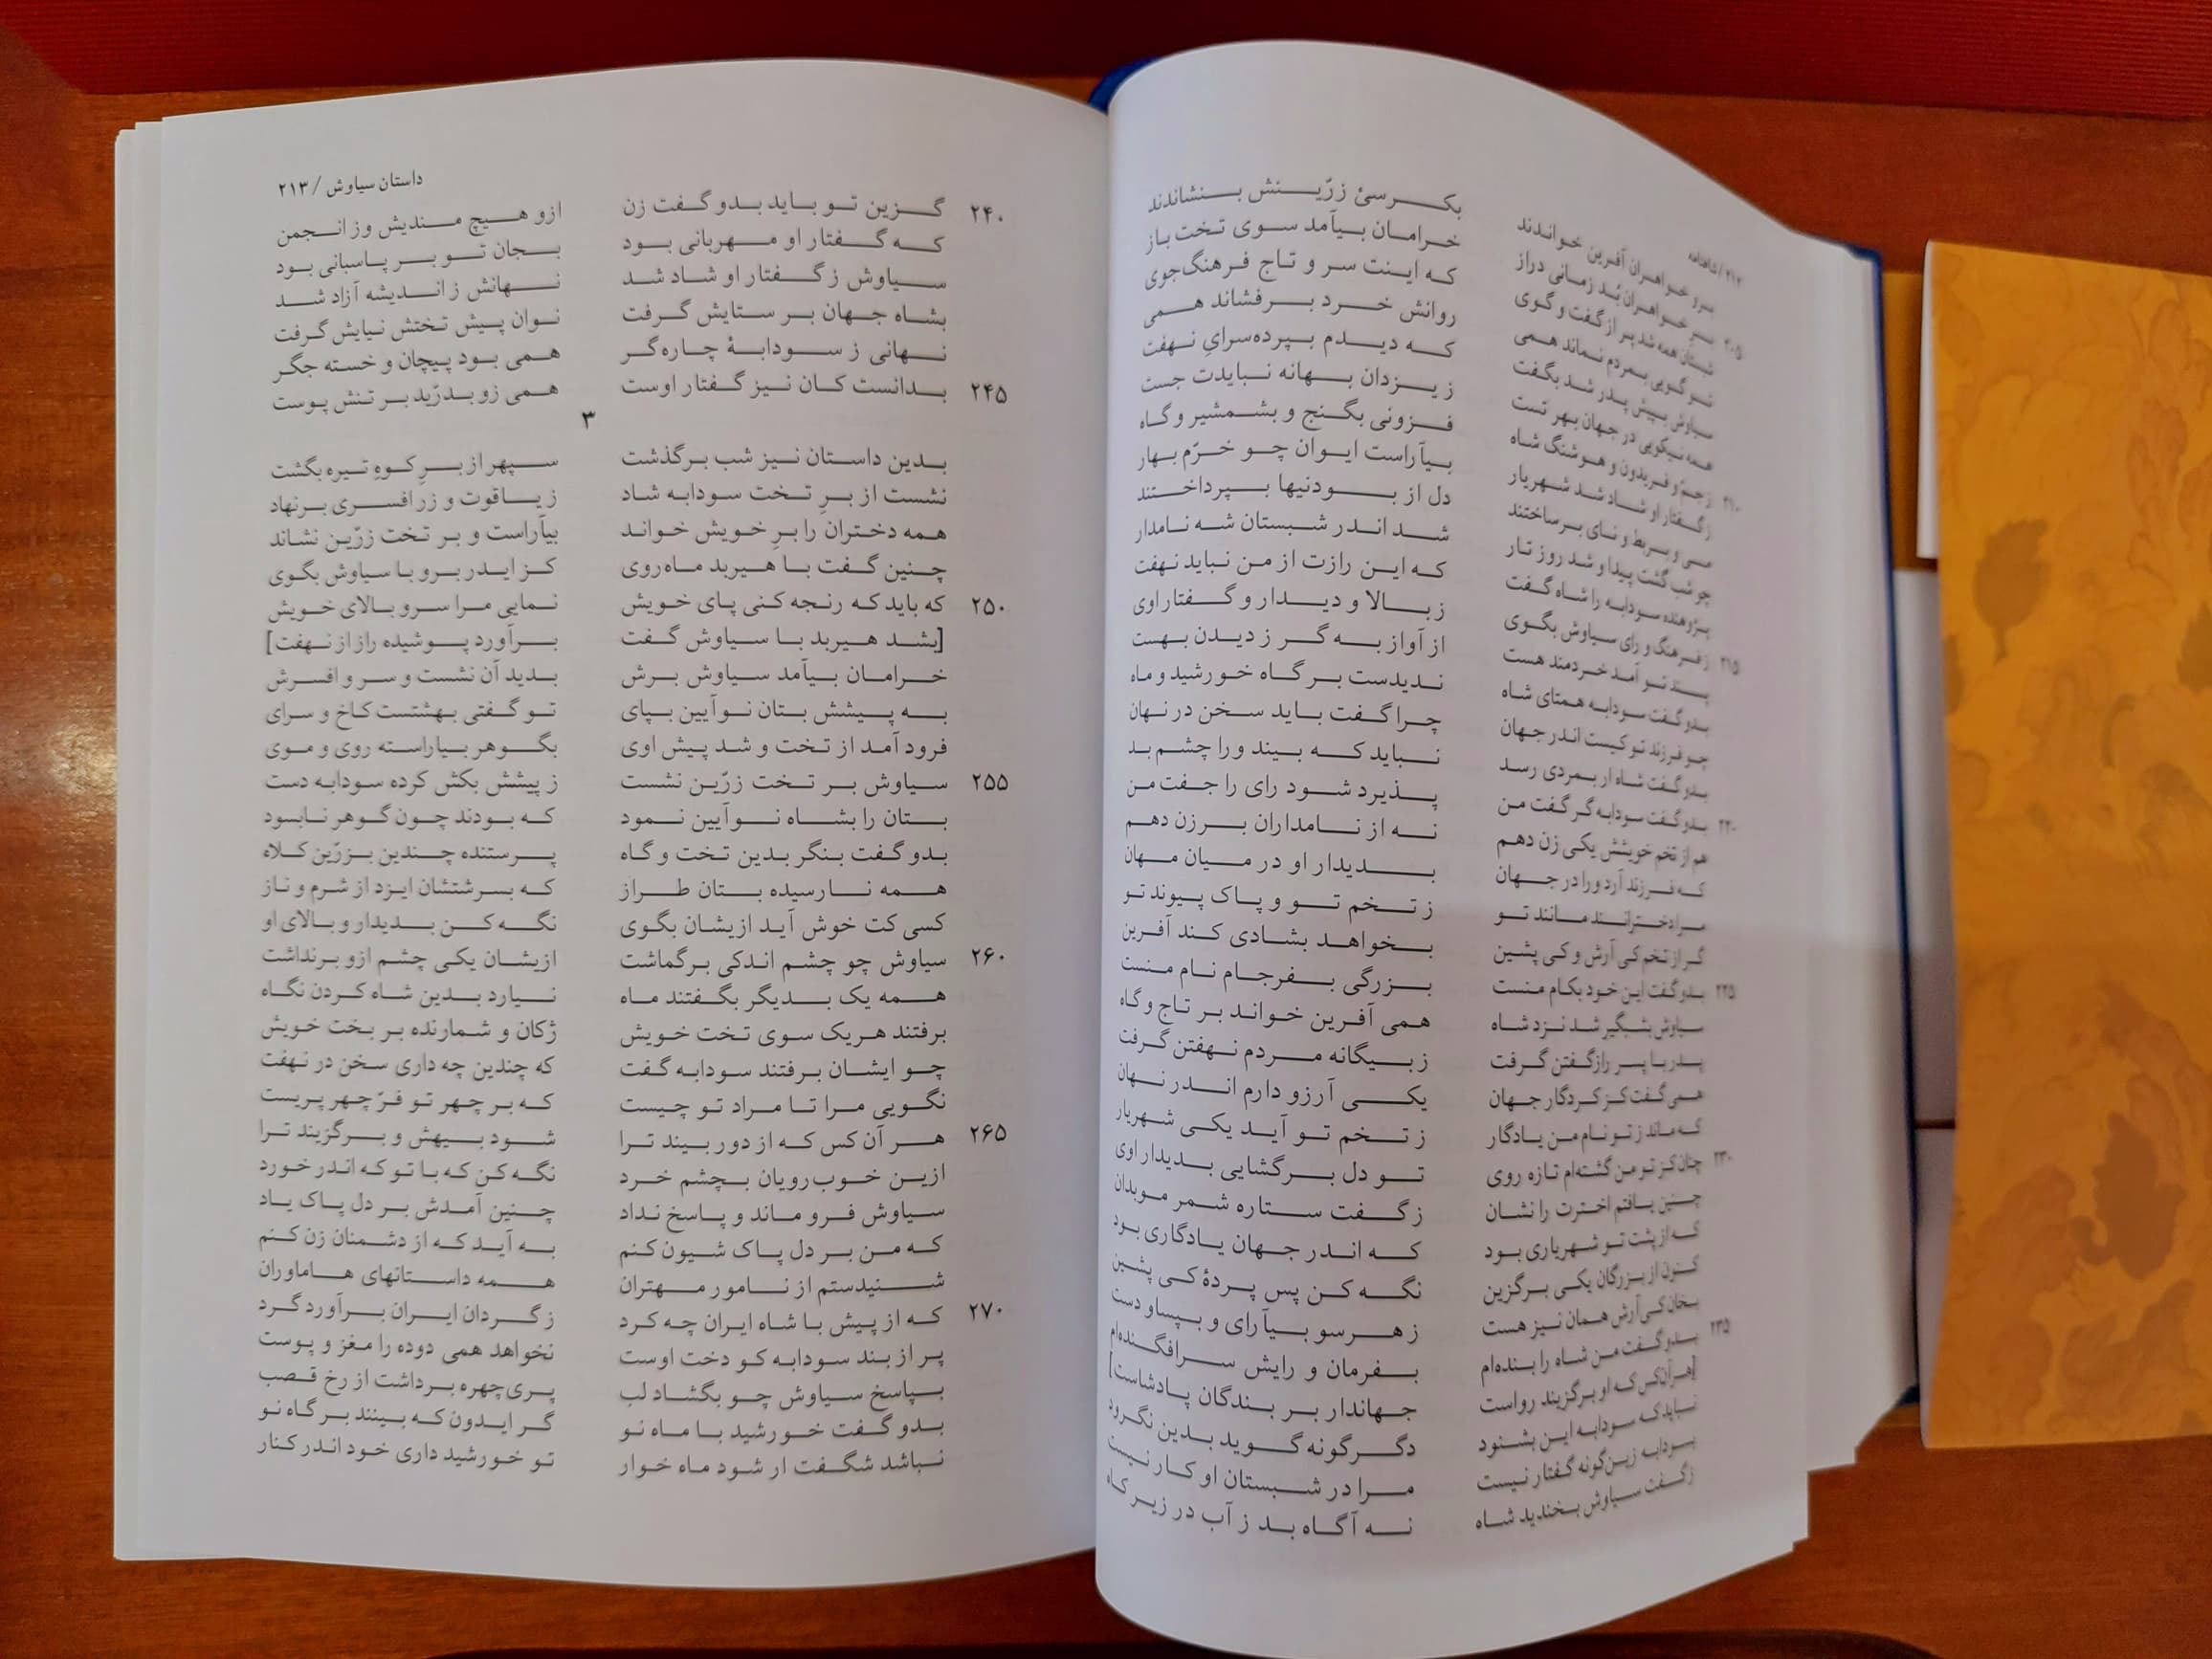 ۲۱۲ / شاهنامه
برو خواهران آفرین خواندند بکرسیٔ زرّینش بنشاندند
۲۰۵ بر خواهران بُد زمانی دراز خرامان بیآمد سوی تخت باز
شبستان همه شد پر از گفت و گوی که اینت سر و تاج فرهنگ‌جوی
تو گویی بمردم نماند همی روانش خرد برفشاند همی
سیاوش بپیش پدر شد بگفت که دیدم بپرده‌سرایِ نهفت
همه نیکویی در جهان بهر تست ز یزدان بهانه نبایدت جست
۲۱۰ ز جمّ و فریدون و هوشنگ شاه فزونی بگنج و بشمشیر و گاه
ز گفتار او شاد شد شهریار بیآراست ایوان چو خرّم بهار
می و بربط و نای برساختند دل از بودنیها بپرداختند
چو شب گشت پیدا و شد روز تار شد اندر شبستان شه نامدار
پژوهنده سودابه را شاه گفت که این رازت از من نباید نهفت
۲۱۵ ز فرهنگ و رای سیاوش بگوی ز بالا و دیدار و گفتار اوی
پسند تو آمد خردمند هست از آواز به گر ز دیدن بهست
بدو گفت سودابه همتای شاه ندیدست بر گاه خورشید و ماه
چو فرزند تو کیست اندر جهان چرا گفت باید سخن در نهان
بدو گفت شاه ار بمردی رسد نباید که بیند ورا چشم بد
۲۲۰ بدو گفت سودابه گر گفت من پذیرد شود رای را جفت من
هم از تخم خویشش یکی زن دهم نه از نامداران برزن دهم
که فرزند آرد ورا در جهان بدیدار او در میان مهان
مرا دخترانند مانند تو ز تخم تو و پاک پیوند تو
گر از تخم کی آرش و کی پشین بخواهد بشادی کند آفرین
۲۲۵ بدو گفت این خود بکام منست بزرگی بفرجام نام منست
سیاوش بشبگیر شد نزد شاه همی آفرین خواند بر تاج و گاه
پدر با پسر راز گفتن گرفت ز بیگانه مردم نهفتن گرفت
همی گفت کز کردگار جهان یکی آرزو دارم اندر نهان
که ماند ز تو نام من یادگار ز تخم تو آید یکی شهریار
۲۳۰ چنان کز تو من گشته‌ام تازه روی تو دل برگشایی بدیدار اوی
چنین یافتم اخترت را نشان ز گفت ستاره شمر موبدان
که از پشت تو شهریاری بود که اندر جهان یادگاری بود
کنون از بزرگان یکی برگزین نگه کن پس پردهٔ کی پشین
بخان کی آرش همان نیز هست ز هر سو بیآرای و بپساو دست
۲۳۵ بدو گفت من شاه را بنده‌ام بفرمان و رایش سرافگنده‌ام
[هر آن کس که او برگزیند رواست جهاندار بر بندگان پادشاست]
نباید که سودابه این بشنود دگرگونه گوید بدین نگرود
بسودابه زین‌گونه گفتار نیست مرا در شبستان او کار نیست
ز گفت سیاوش بخندید شاه نه آگاه بد ز آب در زیر کاه
داستان سیاوش / ۲۱۳
۲۴۰ گزین تو باید بدو گفت زن ازو هیچ مندیش وز انجمن
که گفتار او مهربانی بود بجان تو بر پاسبانی بود
سیاوش ز گفتار او شاد شد نهانش ز اندیشه آزاد شد
بشاه جهان بر ستایش گرفت نوان پیش تختش نیایش گرفت
نهانی ز سودابهٔ چاره‌گر همی بود پیچان و خسته جگر
۲۴۵ بدانست کان نیز گفتار اوست همی زو بدرّید بر تنش پوست
۳
بدین داستان نیز شب برگذشت سپهر از برِ کوهِ تیره بگشت
نشست از برِ تخت سودابه شاد ز یاقوت و زر افسری برنهاد
همه دختران را برِ خویش خواند بیآراست و بر تخت زرّین نشاند
چنین گفت با هیربد ماه‌روی کز ایدر برو با سیاوش بگوی
۲۵۰ که باید که رنجه کنی پای خویش نمایی مرا سرو بالای خویش
[بشد هیربد با سیاوش گفت برآورد پوشیده راز از نهفت]
خرامان بیآمد سیاوش برش بدید آن نشست و سر و افسرش
به پیشش بتان نوآیین بپای تو گفتی بهشتست کاخ و سرای
فرود آمد از تخت و شد پیش اوی بگوهر بیاراسته روی و موی
۲۵۵ سیاوش بر تخت زرّین نشست ز پیشش بکش کرده سودابه دست
بتان را بشاه نوآیین نمود که بودند چون گوهر نابسود
بدو گفت بنگر بدین تخت و گاه پرستنده چندین بزرّین کلاه
همه نارسیده بتان طراز که بسرشتشان ایزد از شرم و ناز
کسی کت خوش آید ازیشان بگوی نگه کن بدیدار و بالای او
۲۶۰ سیاوش چو چشم اندکی برگماشت ازیشان یکی چشم ازو برنداشت
همه یک بدیگر بگفتند ماه نیارد بدین شاه کردن نگاه
برفتند هریک سوی تخت خویش ژکان و شمارنده بر بخت خویش
چو ایشان برفتند سودابه گفت که چندین چه داری سخن در نهفت
نگویی مرا تا مراد تو چیست که بر چهر تو فرّ چهر پریست
۲۶۵ هر آن کس که از دور بیند ترا شود بیهش و برگزیند ترا
ازین خوب‌رویان بچشم خرد نگه کن که با تو که اندر خورد
سیاوش فرو ماند و پاسخ نداد چنین آمدش بر دل پاک یاد
که من بر دل پاک شیون کنم به آید که از دشمنان زن کنم
شنیدستم از نامور مهتران همه داستانهای هاماوران
۲۷۰ که از پیش با شاه ایران چه کرد ز گردان ایران برآورد گرد
پر از بند سودابه کو دخت اوست نخواهد همی دوده را مغز و پوست
بپاسخ سیاوش چو بگشاد لب پری‌چهره برداشت از رخ قصب
بدو گفت خورشید با ماه نو گر ایدون که بینند بر گاه نو
نباشد شگفت ار شود ماه خوار تو خورشید داری خود اندر کنار